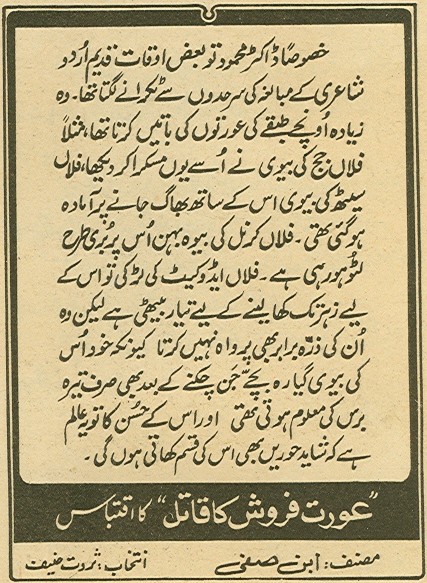 خصوصاً ڈاکٹر محمود تو بعض اوقات قدیم اُردو
شاعری کے مبالغہ کی سرحدوں سے ٹکرانے لگتا تھا۔ وہ
زیادہ اُونچے طبقے کی عورتوں کی باتیں کرتا تھا، مثلاً
فلاں جج کی بیوی نے اُسے یوں مسکرا کر دیکھا، فلاں
سیٹھ کی بیوی اس کے ساتھ بھاگ جانے پر آمادہ
ہو گئی تھی۔ فلاں کرنل کی بیوہ بہن اُس پر بُری طرح
لٹو ہو رہی ہے۔ فلاں ایڈوکیٹ کی لڑکی تو اس کے
لیے زہر تک کھا لینے کے لیے تیار بیٹھی ہے لیکن وہ
اُن کی ذرّہ برابر بھی پرواہ نہیں کرتا کیونکہ خود اُس
کی بیوی گیارہ بچے جَن چکنے کے بعد بھی صرف تیرہ
برس کی معلوم ہوتی تھی اور اس کے حُسن کا تو یہ عالم
ہے کہ شاید حوریں بھی اس کی قسم کھاتی ہوں گی۔
”عورت فروش کا قاتل“ کا اقتباس
مصنف: ابن صفی
انتخاب: ثروت حنیف